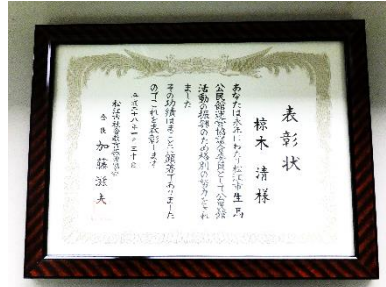 表彰状
椋木 清 様
あなたは永年にわたり松江市生馬
公民館運営協議会委員として公民館
活動の振興のため格別の努力をされ
ました
その功績はまことに顕著でありました
のでこれを表彰します
平成二十八年一月三十日
会長 加藤 夫